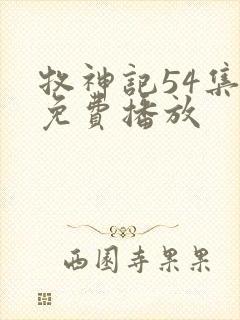 牧神記54集
免費播放
西園寺果果